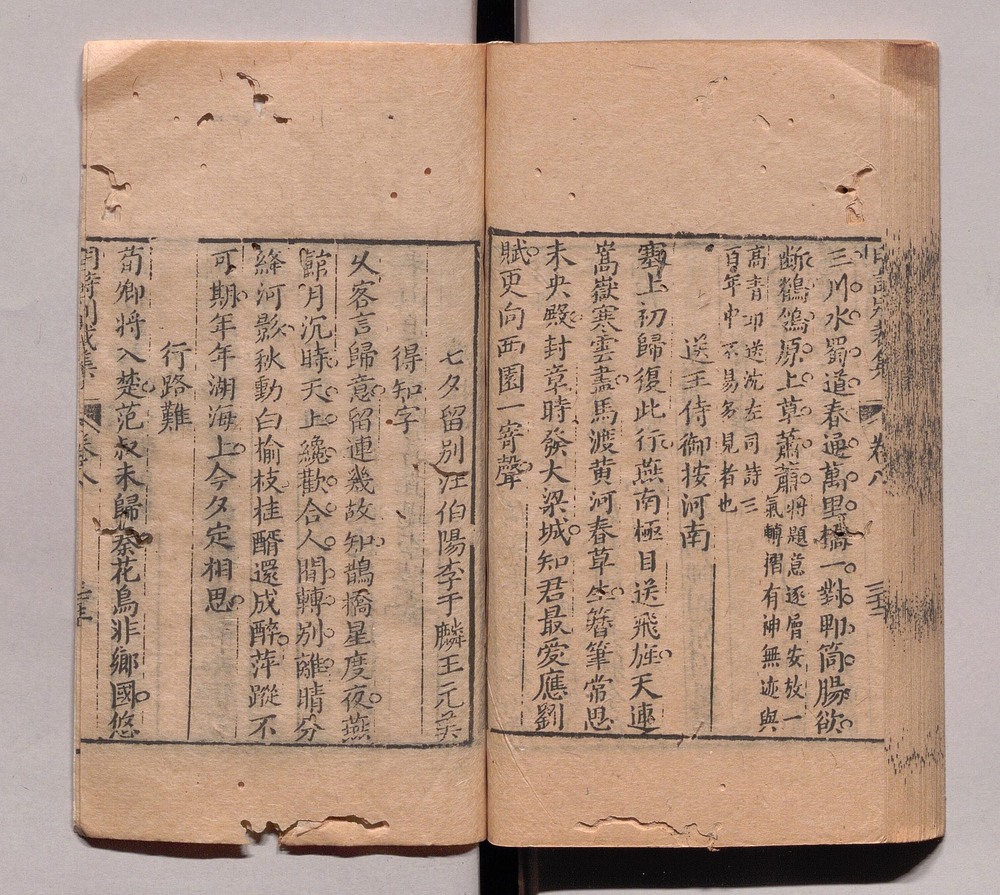 明詩別裁集 卷八
三川水蜀道春通萬里橋一對郫筒腸欲
斷鶺鴒原上草蕭蕭將題意逐層安放一
氣轉摺有神無迹與
高青邱送沈左司詩三
百年中不易多見者也
送王侍御按河南
塞上初歸復此行燕南極目送飛旌天連
嵩嶽寒雲盡馬渡黄河春草生簪筆常思
未央殿封章時發大梁城知君最愛應劉
賦更向西園一寄聲
七夕留別汪伯陽李于麟王元美
得知字
久客言歸意留連幾故知鵲橋星度夜燕
館月沉時天上纔歡合人間轉別離晴分
絳河影秋動白榆枝桂醑還成醉萍蹤不
可期年年湖海上今夕定相思
行路難
荀卿將入楚范叔未歸秦花鳥非鄉國悠
明詩別裁集 卷八